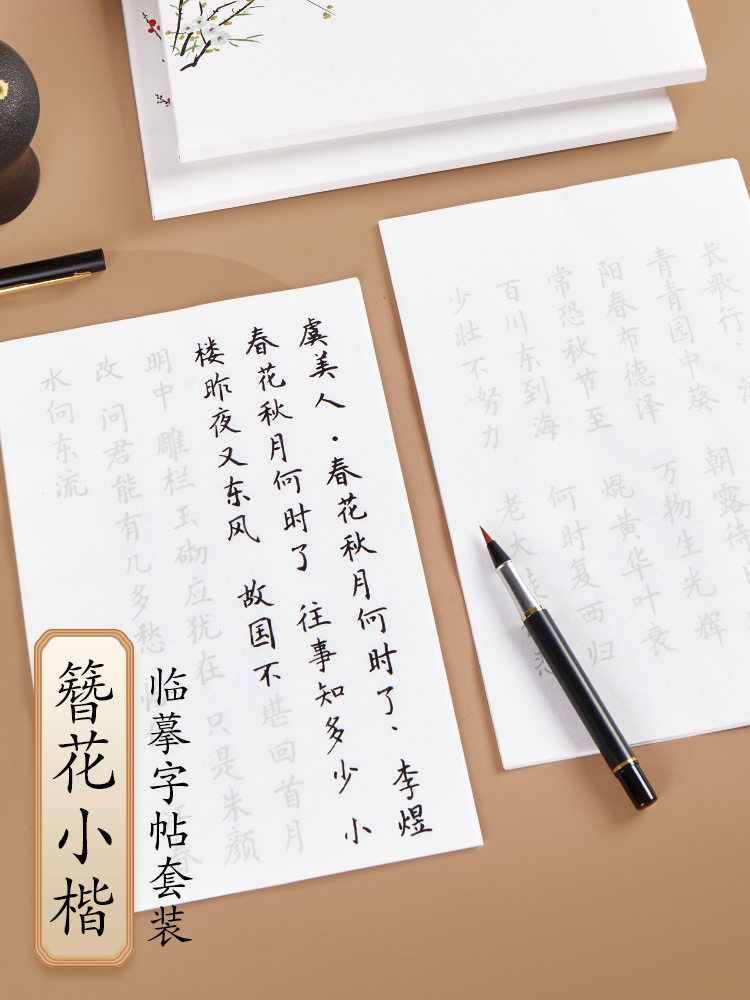 长歌行·
青青园中葵 朝露待
阳春布德泽 万物生光辉
常恐秋节至 焜黄华叶衰
百川东到海 何时复西归
少壮不努力 老大
虞美人·春花秋月何时了、李煜
春花秋月何时了 往事知多少 小
楼昨夜又东风 故国不堪回首月
明中 雕栏玉砌应犹在 只是朱颜
改 问君能有几多愁 春
水向东流
簪花小楷
临摹字帖套装